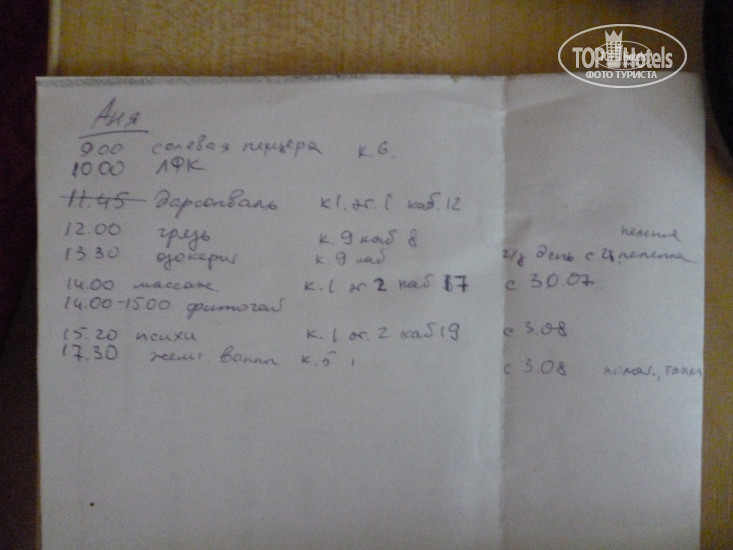 TOP Hotels
ФОТО ТУРИСТА
Аня
9.00 солевая пещера к.6.
10.00 ЛФК
11.45 Дарсонваль к1. эт.1 каб.12
12.00 грязь к.9 каб 8 пеленка
13.30 озокерит к.9 каб ч/з день с пеленка
14.00 массаж к.1 эт 2 каб 17 с 30.07
14.00-15.00 фиточай
15.20 психи к.1 эт. 2 каб 19 с 3.08
17.30 жем. ванны к.5 с 3.08